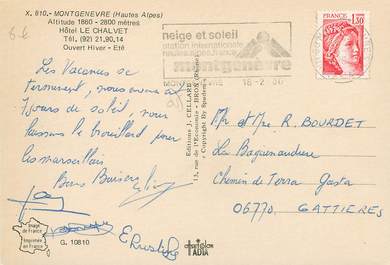 X. 810. - MONTGENEVRE (Hautes Alpes)
Altitude 1860 - 2800 mètres
Hôtel LE CHALVET
Tél. (92) 21.90.14
Ouvert Hiver - Eté
neige et soleil
station internationale
hautes alpes, france
montgenèvre
18-2
1,30
FRANCE
Les Vacances se
terminent, nous avons eu
7 jours de soleil, nous
laissons le brouillard pour
les marseillais
Bons Baisers
Christine
Editions J. CELLARD
13, rue de l'Economie - BRON (Rhône)
Copyright By
Mr et Mme R. BOURDET
La Baguenaudière
Chemin de Terra Gasta
06770 GATTIERES
Image
de France
Imprimée
en France
G. 10810
TADIA